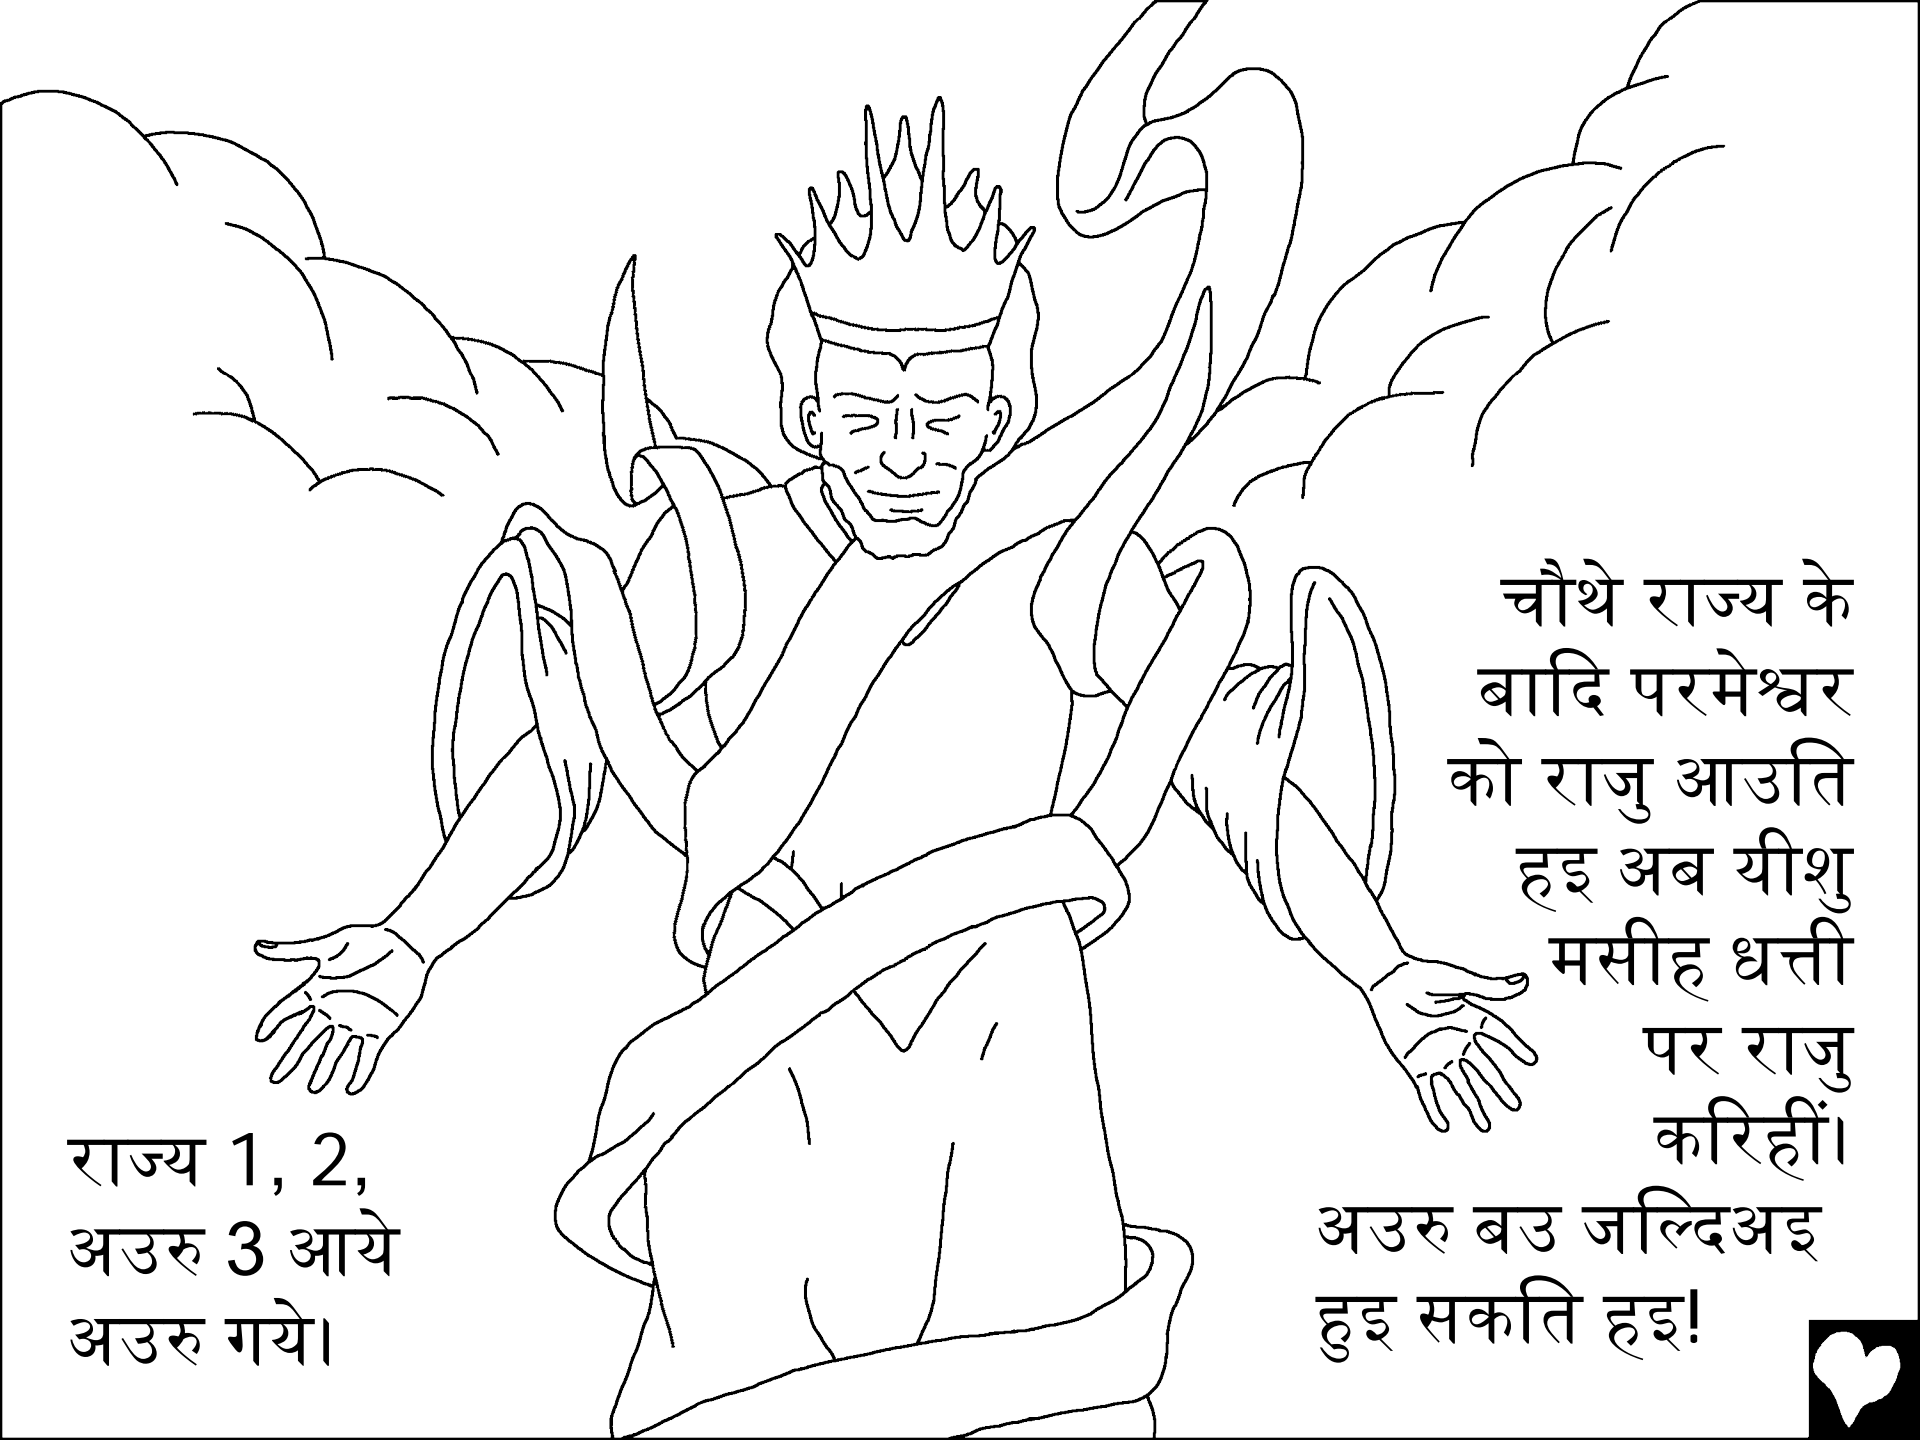 चौथे राज्य के
बादि परमेश्वर
को राजु आउति
हइ अब यीशु
मसीह धत्ती
पर राजु
करिहीं।
अउरु बउ जल्दिअइ
हुइ सकति हइ!
राज्य 1, 2,
अउरु 3 आये
अउरु गये।